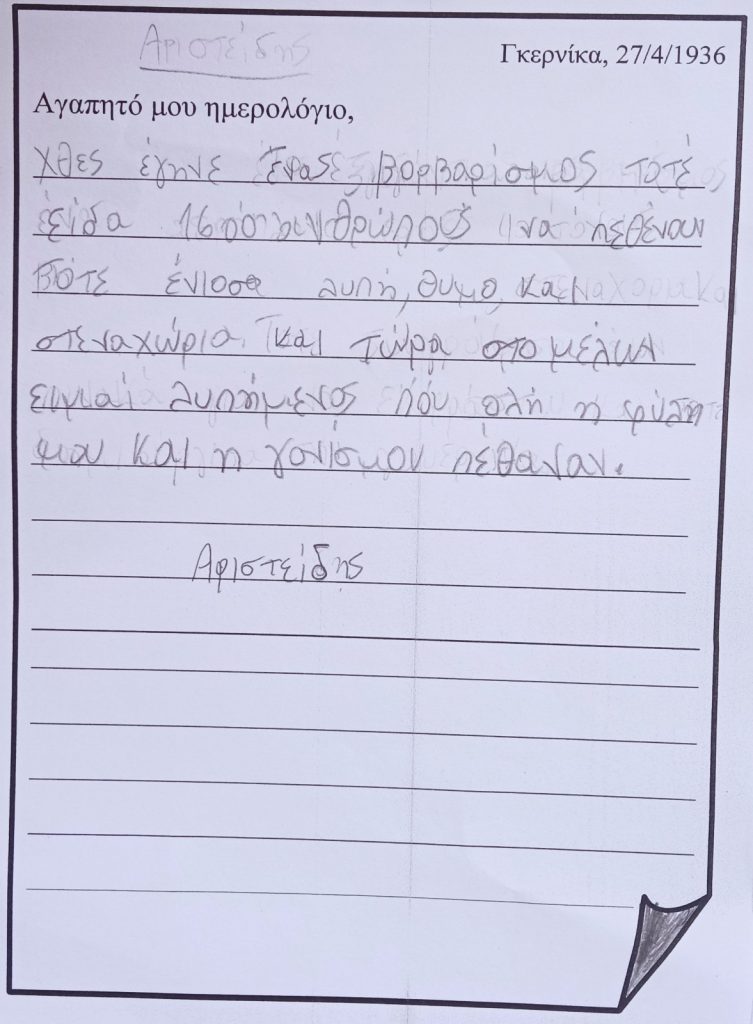 Αριστείδης
Γκερνίκα, 27/4/1936
Αγαπητό μου ημερολόγιο,
χθες έγηνε ένας βαρβαρισμος τοτέ
είδα 1600 ανθρώπους να πεθένουν
τότε ένιοσα λυπή, θυμο, και
στεναχώρια. και τώρα στο μέλων
ειμαί λυπημένος πού ολή η φύλη
μου και η γονίσμου πέθαναν.
Αριστείδης